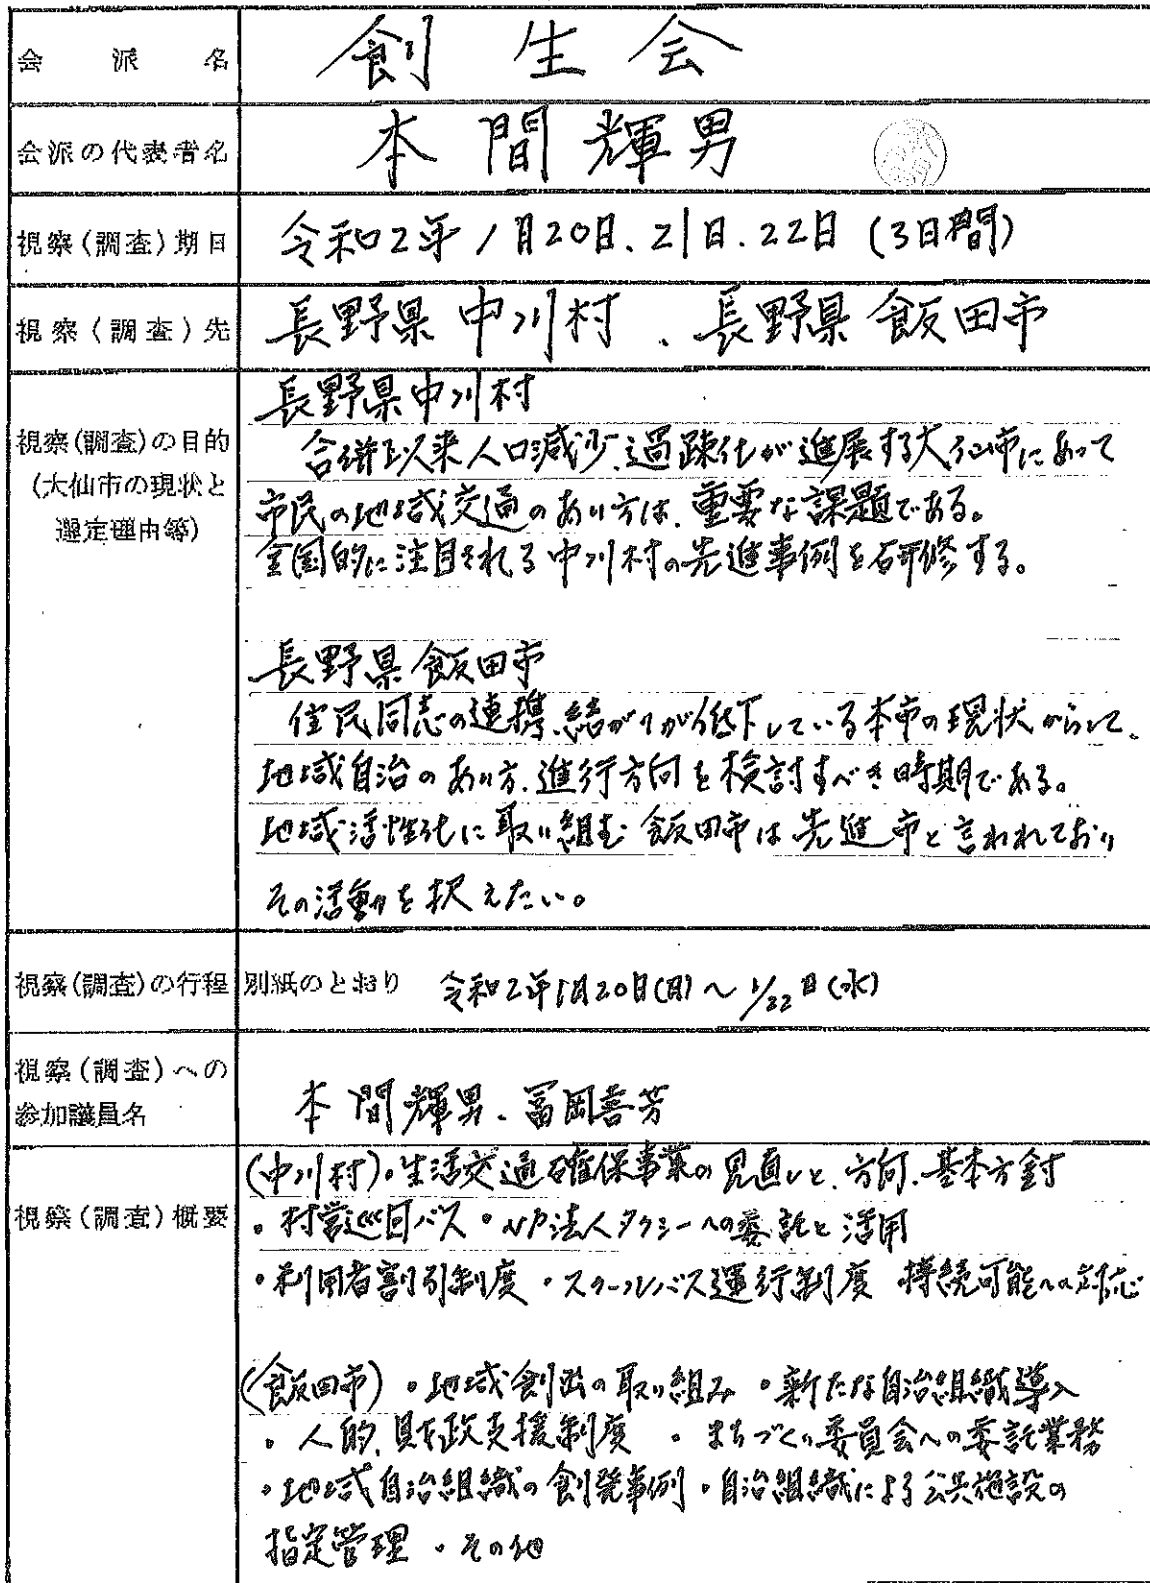 会派名 創生会
会派の代表者名 本間輝男
視察(調査)期日 令和2年1月20日、21日、22日(3日間)
視察(調査)先 長野県中川村、長野県飯田市
視察(調査)の目的
(大仙市の現状と
選定理由等)
長野県中川村
合併以来人口減少、過疎化が進展する大仙市にあって
市民の地域交通のあり方は、重要な課題である。
全国的に注目される中川村の先進事例を研修する。
長野県飯田市
住民同志の連携、結がりが低下している本市の現状からして、
地域自治のあり方、進行方向を検討すべき時期である。
地域活性化に取り組む飯田市は先進市と言われており
その活動を択えたい。
視察(調査)の行程 別紙のとおり 令和2年1月20日(月)~1/22日(水)
視察(調査)への
参加議員名
本間輝男、冨岡喜芳
視察(調査)概要
(中川村)・生活交通確保事業の見直しと、方向、基本方針
・村営巡回バス・NP法人タクシーへの委託と活用
・利用者割引制度・スクールバス運行制度 持続可能への対応
(飯田市)・地域創出の取り組み・新たな自治組織導入
・人的、財政支援制度・まちづくり委員会への委託業務
・地域自治組織の創発事例・自治組織による公共施設の
指定管理・その他